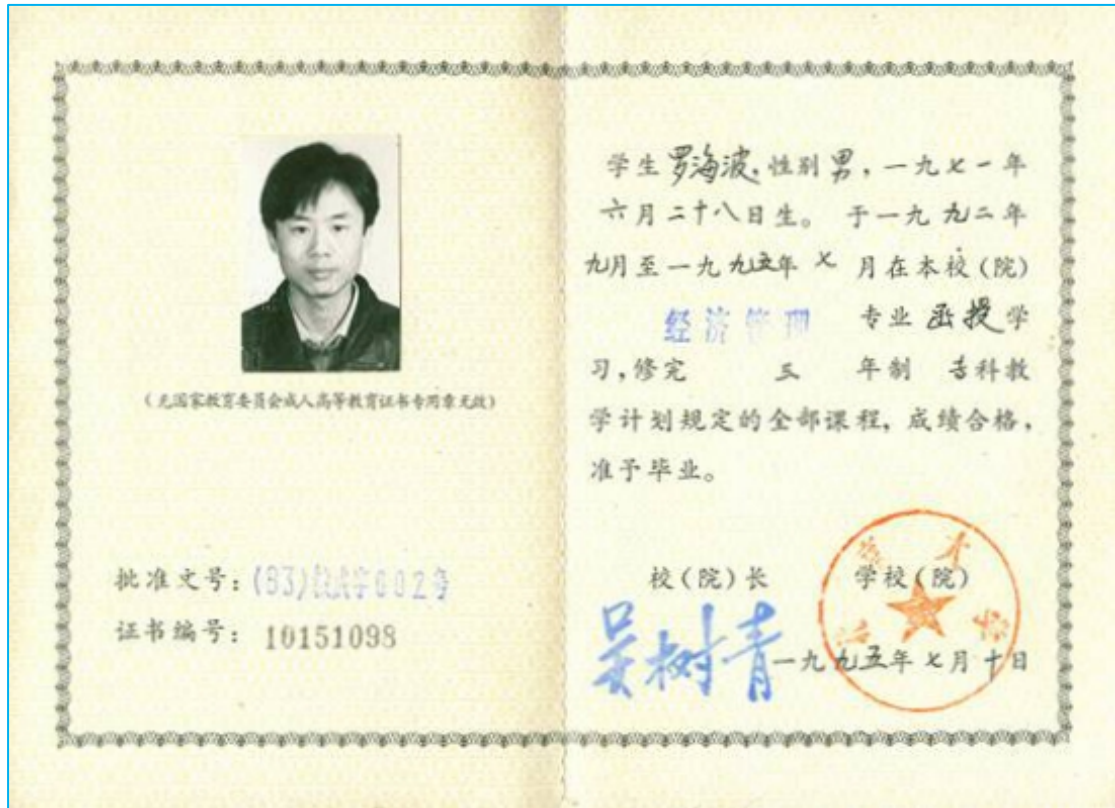 (无国家教育委员会成人高等教育证书专用章无效)
批准文号：(83)教成字002号
证书编号：10151098
学生罗海波，性别男，一九七一年
六月二十八日生。于一九九二年
九月至一九九五年七月在本校(院)
经济管理 专业函授学
习，修完 三 年制 专科教
学计划规定的全部课程，成绩合格，
准予毕业。
校(院)长 学校(院)
吴树青
一九九五年七月十日